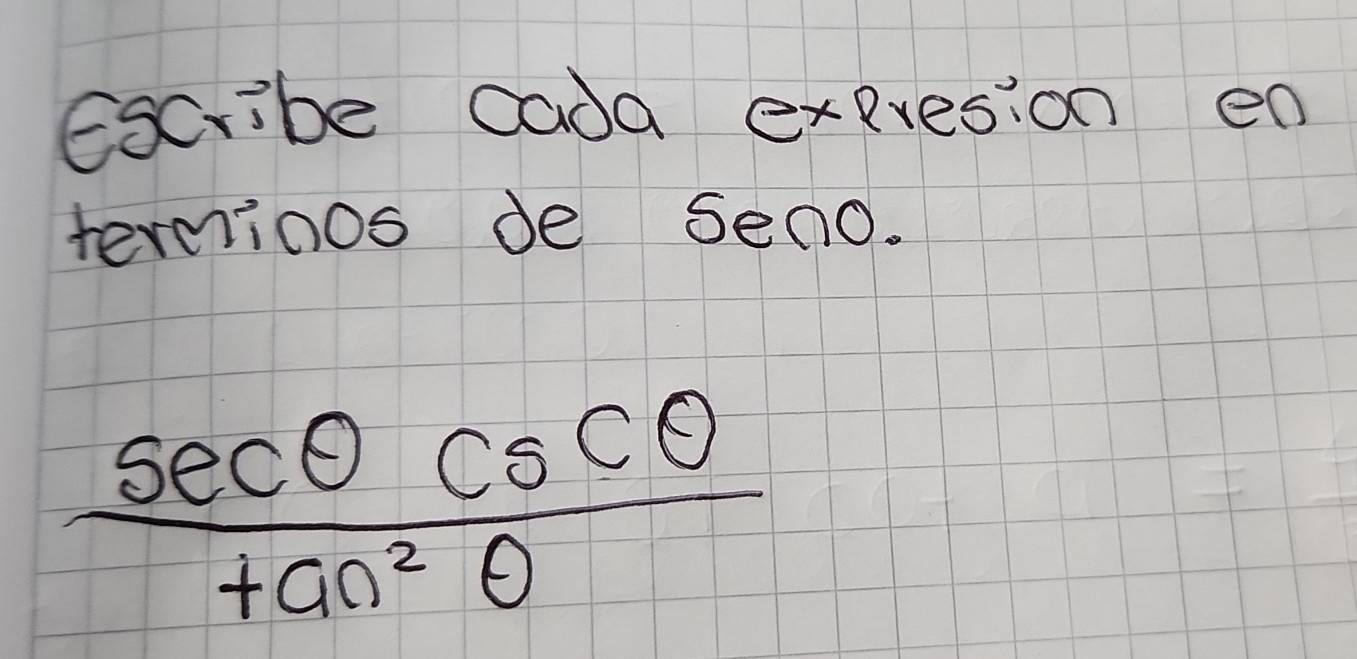 Escribe cada expresion en
terminos de seno.
secθ cscθ
tan² θ